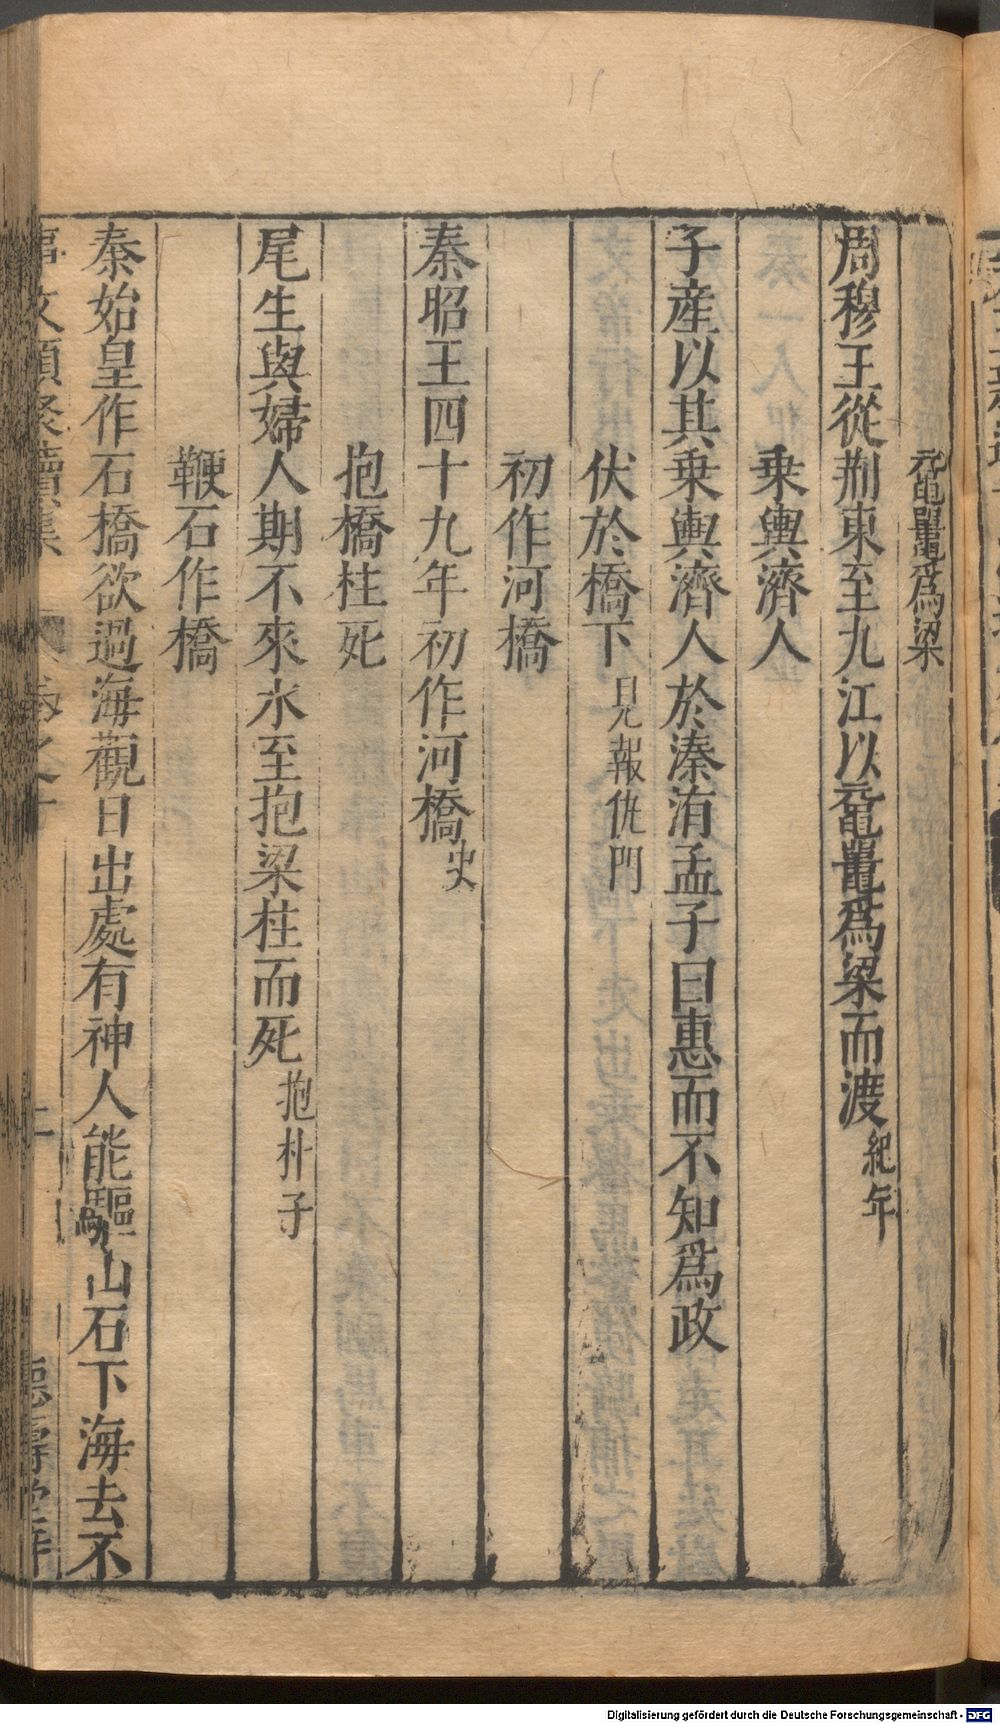 黿鼉爲梁
周穆王從荆東至九江以黿鼉爲梁而渡紀年
乗輿濟人
子産以其乗輿濟人於溱洧孟子曰惠而不知爲政
伏於橋下見報仇門
初作河橋
秦昭王四十九年初作河橋史
抱橋柱死
尾生與婦人期不來水至抱梁柱而死抱朴子
鞭石作橋
秦始皇作石橋欲過海觀日出處有神人能驅山石下海去不
事文類聚續集 卷之十
Digitalisierung gefördert durch die Deutsche Forschungsgemeinschaft - DFG